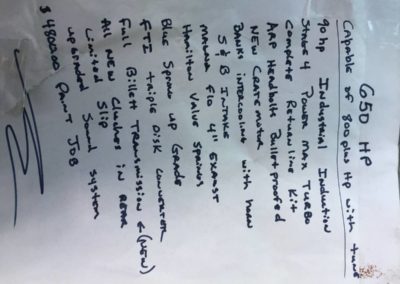 650 HP
Capable of 800 plus Hp with tune
90 hp Industrial Induction
Stage 4 Power Max Turbo
Complete Return line Kit
Arp Headbolts Bulletproofed
New Crate motor
Banks intercooler with horn
S&B Intake
Magna Flo 4" Exaust
Hamilton Valve Springs
Blue Spraw up Grade
FTI triple Disk Converter
Full Billett Transmission ← (New)
All New Clushes in Rear
Limited Slip
upgraded Sound System
$ 4800.00 Paint Job